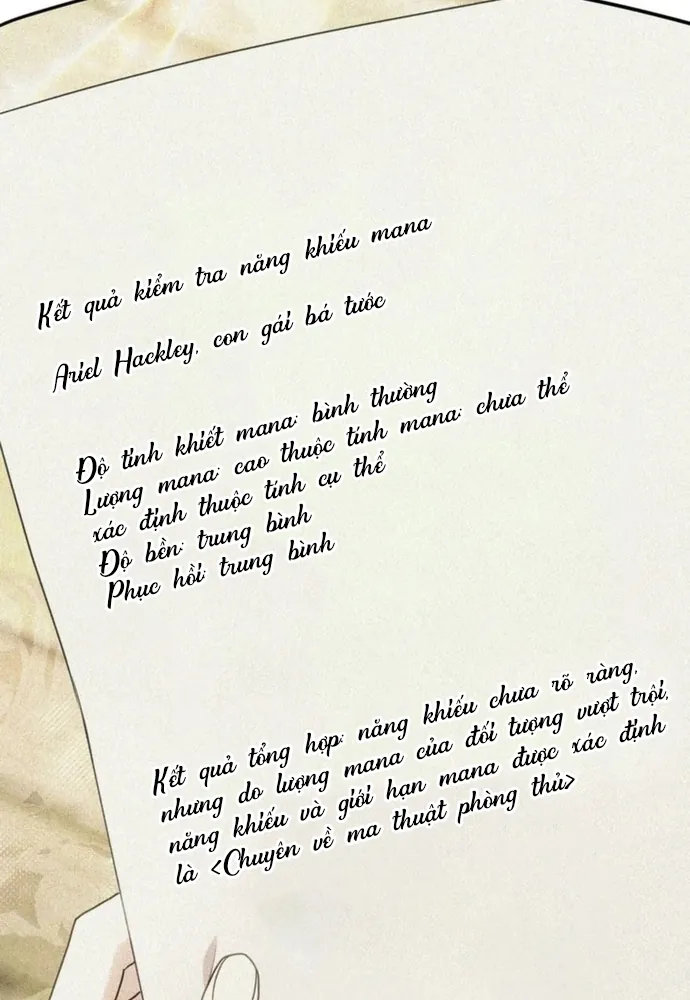 Kết quả kiểm tra năng khiếu mana
Ariel Hackley, con gái bá tước
Độ tinh khiết mana: bình thường
Lượng mana: cao thuộc tính mana: chưa thể
xác định thuộc tính cụ thể
Độ bền: trung bình
Phục hồi: trung bình
Kết quả tổng hợp: năng khiếu chưa rõ ràng,
nhưng do lượng mana của đối tượng vượt trội,
năng khiếu và giới hạn mana được xác định
là <Chuyên về ma thuật phòng thủ>